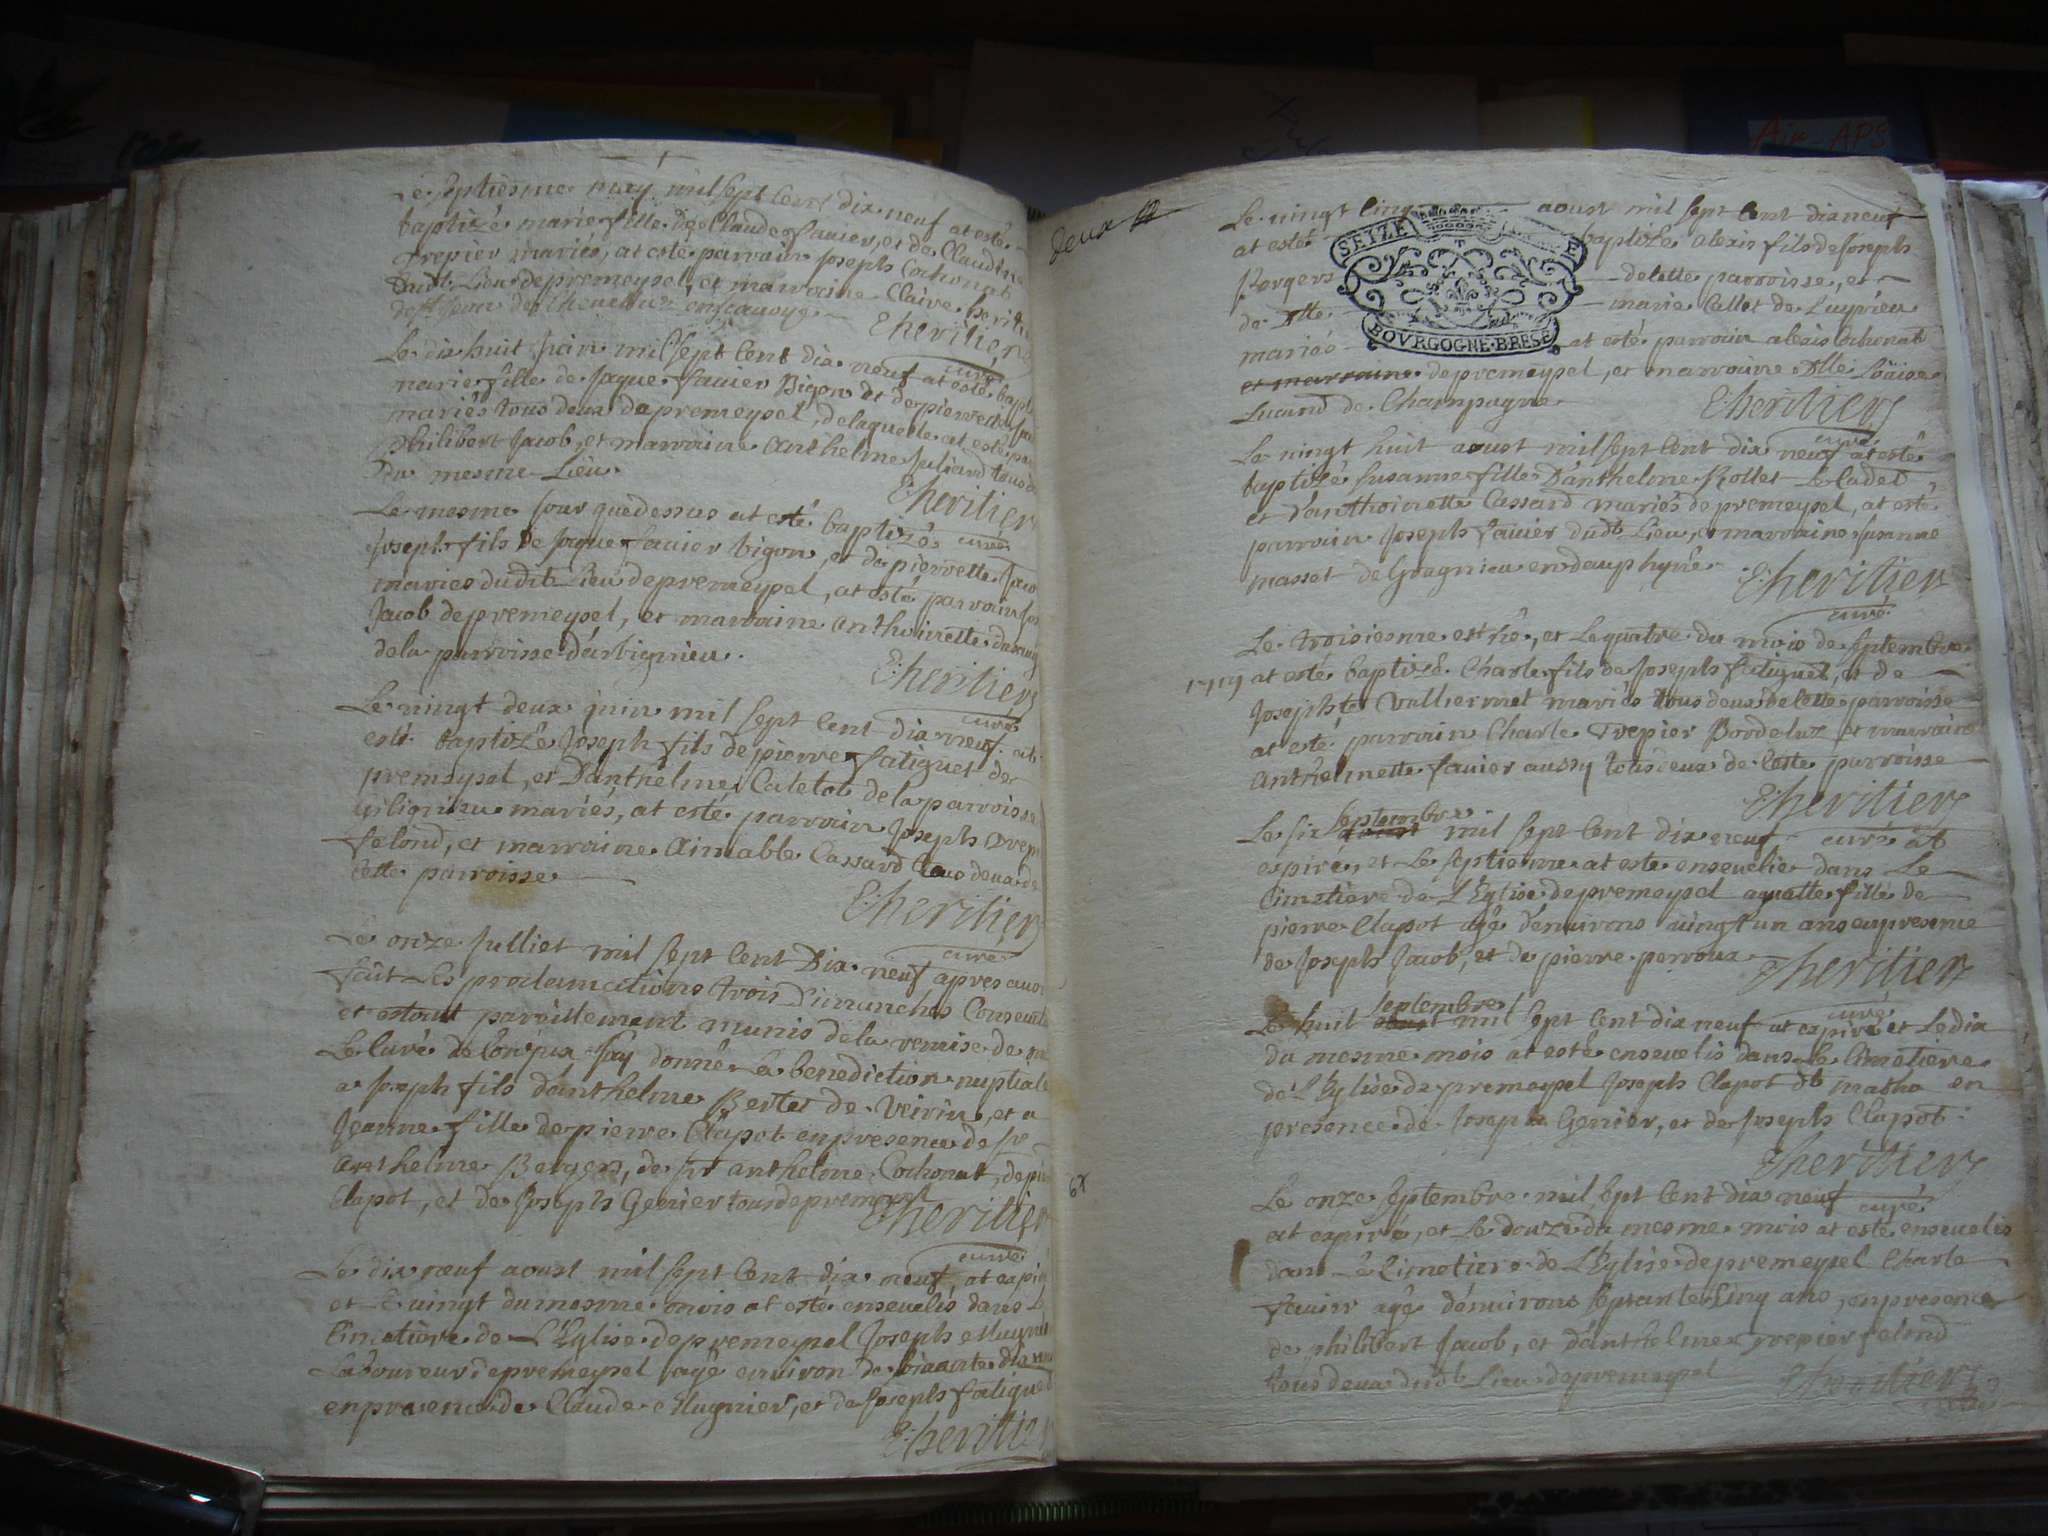 Le septiesme may mil sept cent dix neuf at esté
baptizé marie fille de Claude favier, et de Claudine
Trepier mariés, at esté parrain Joseph Cochonat
dudt Lieu de premeysel, et marraine Claire
Eheritier
curé
Le dix huit juin mil sept cent dix neuf at esté
marie fille de Jaque favier Bigon et de pierrette
mariés tous deux de premeysel, de laquelle at esté
philibert Jacob, et marraine anthelme Juliand tous
du mesme Lieu
Eheritier
curé
Le mesme jour que dessus at esté baptizé
Joseph fils de Jaque favier bigon, et de pierrette
mariés dudit Lieu de premeysel, at esté parrain
Jacob de premeysel, et marraine anthoinette
de la parroisse d'arbignieu.
Eheritier
curé
Le vingt deux juin mil sept cent dix neuf at
esté baptizé Joseph fils de pierre fatiguet de
premeysel, et D'anthelme Catelot de la parroisse
mariés, at esté parrain Joseph
felond, et marraine Aimable Cassard tous deux de
cette parroisse
Eheritier
curé
Le onze Julliet mil sept cent Dix neuf apres
fait Les proclamations trois Dimanches
et estant pareillement munis de la remise de
Le Curé de J'ay donné La benediction nuptiale
a Joseph fils d'anthelme Berlet de Veirin, et a
Jeanne fille de pierre Clapot en presence de sr
anthelme Bergers, de sr anthelme Cochonat, de
Clapot, et de Joseph Genier tous de premeysel
Eheritier
curé
Le dix neuf aoust mil sept Cent dix neuf, at
et Le vingt du mesme mois at esté ensevelis dans
Cimetiere de L'Eglise de premeysel Joseph
Laboureur de premeysel agé environ de
en presence de Claude Mugnier, et de Joseph fatiguet
Eheritier
deux
Le vingt cinq aoust mil sept Cent dix neuf
at esté baptizé alexis fils de Joseph
Bergers de cette parroisse, et
de Dlle marie Callet de Luyrieu
mariés at esté parrain alexis Cochonat
et marraine de premeysel, et marraine Dlle Loüise
Lucand de Champagne
Eheritier
curé
SEIZE
BOVRGOGNE·BRESE
Le vingt huit aoust mil sept Cent dix neuf at esté
baptizé susanne fille D'anthelme Rollet Le Cadet
et d'anthoinette Cassard mariés de premeysel, at esté
parrain Joseph favier dudt Lieu, et marraine susanne
masset de Gragnieu en dauphyné
Eheritier
curé
Le troisiesme est né, et Le quatre du mois de septembre
1719 at esté baptizé Charle fils de Joseph fatiguet, et de
Josephte Vulliermet mariés tous deux de cette parroisse
at esté parrain Charle Trepier Bordeluz et marraine
anthelmette favier aussy tous deux de cette parroisse
Eheritier
curé
septembre
Le six aoust mil sept Cent dix neuf at
expiré, et Le septieme at esté ensevelie dans Le
Cimetiere de L'Eglise de premeysel fille de
pierre Clapot agé d'environs vingt un ans en presence
de Joseph Jacob, et de pierre perroux
Eheritier
curé
septembre
Le huit aoust mil sept Cent dix neuf at expiré et Le dix
du mesme mois at esté ensevelis dans Le Cimetiere
de L'Eglise de premeysel Joseph Clapot dt en
presence de Joseph Genier, et de Joseph Clapot.
Eheritier
curé
67
Le onze septembre mil sept Cent dix neuf
at expiré, et Le douze du mesme mois at esté ensevelis
dans Le Cimetiere de L'Eglise de premeysel Charle
favier agé d'environs septante Cinq ans, en presence
de philibert Jacob, et d'anthelme Trepier felond
tous deux dudt Lieu de premeysel
Eheritier
curé
Air-APS